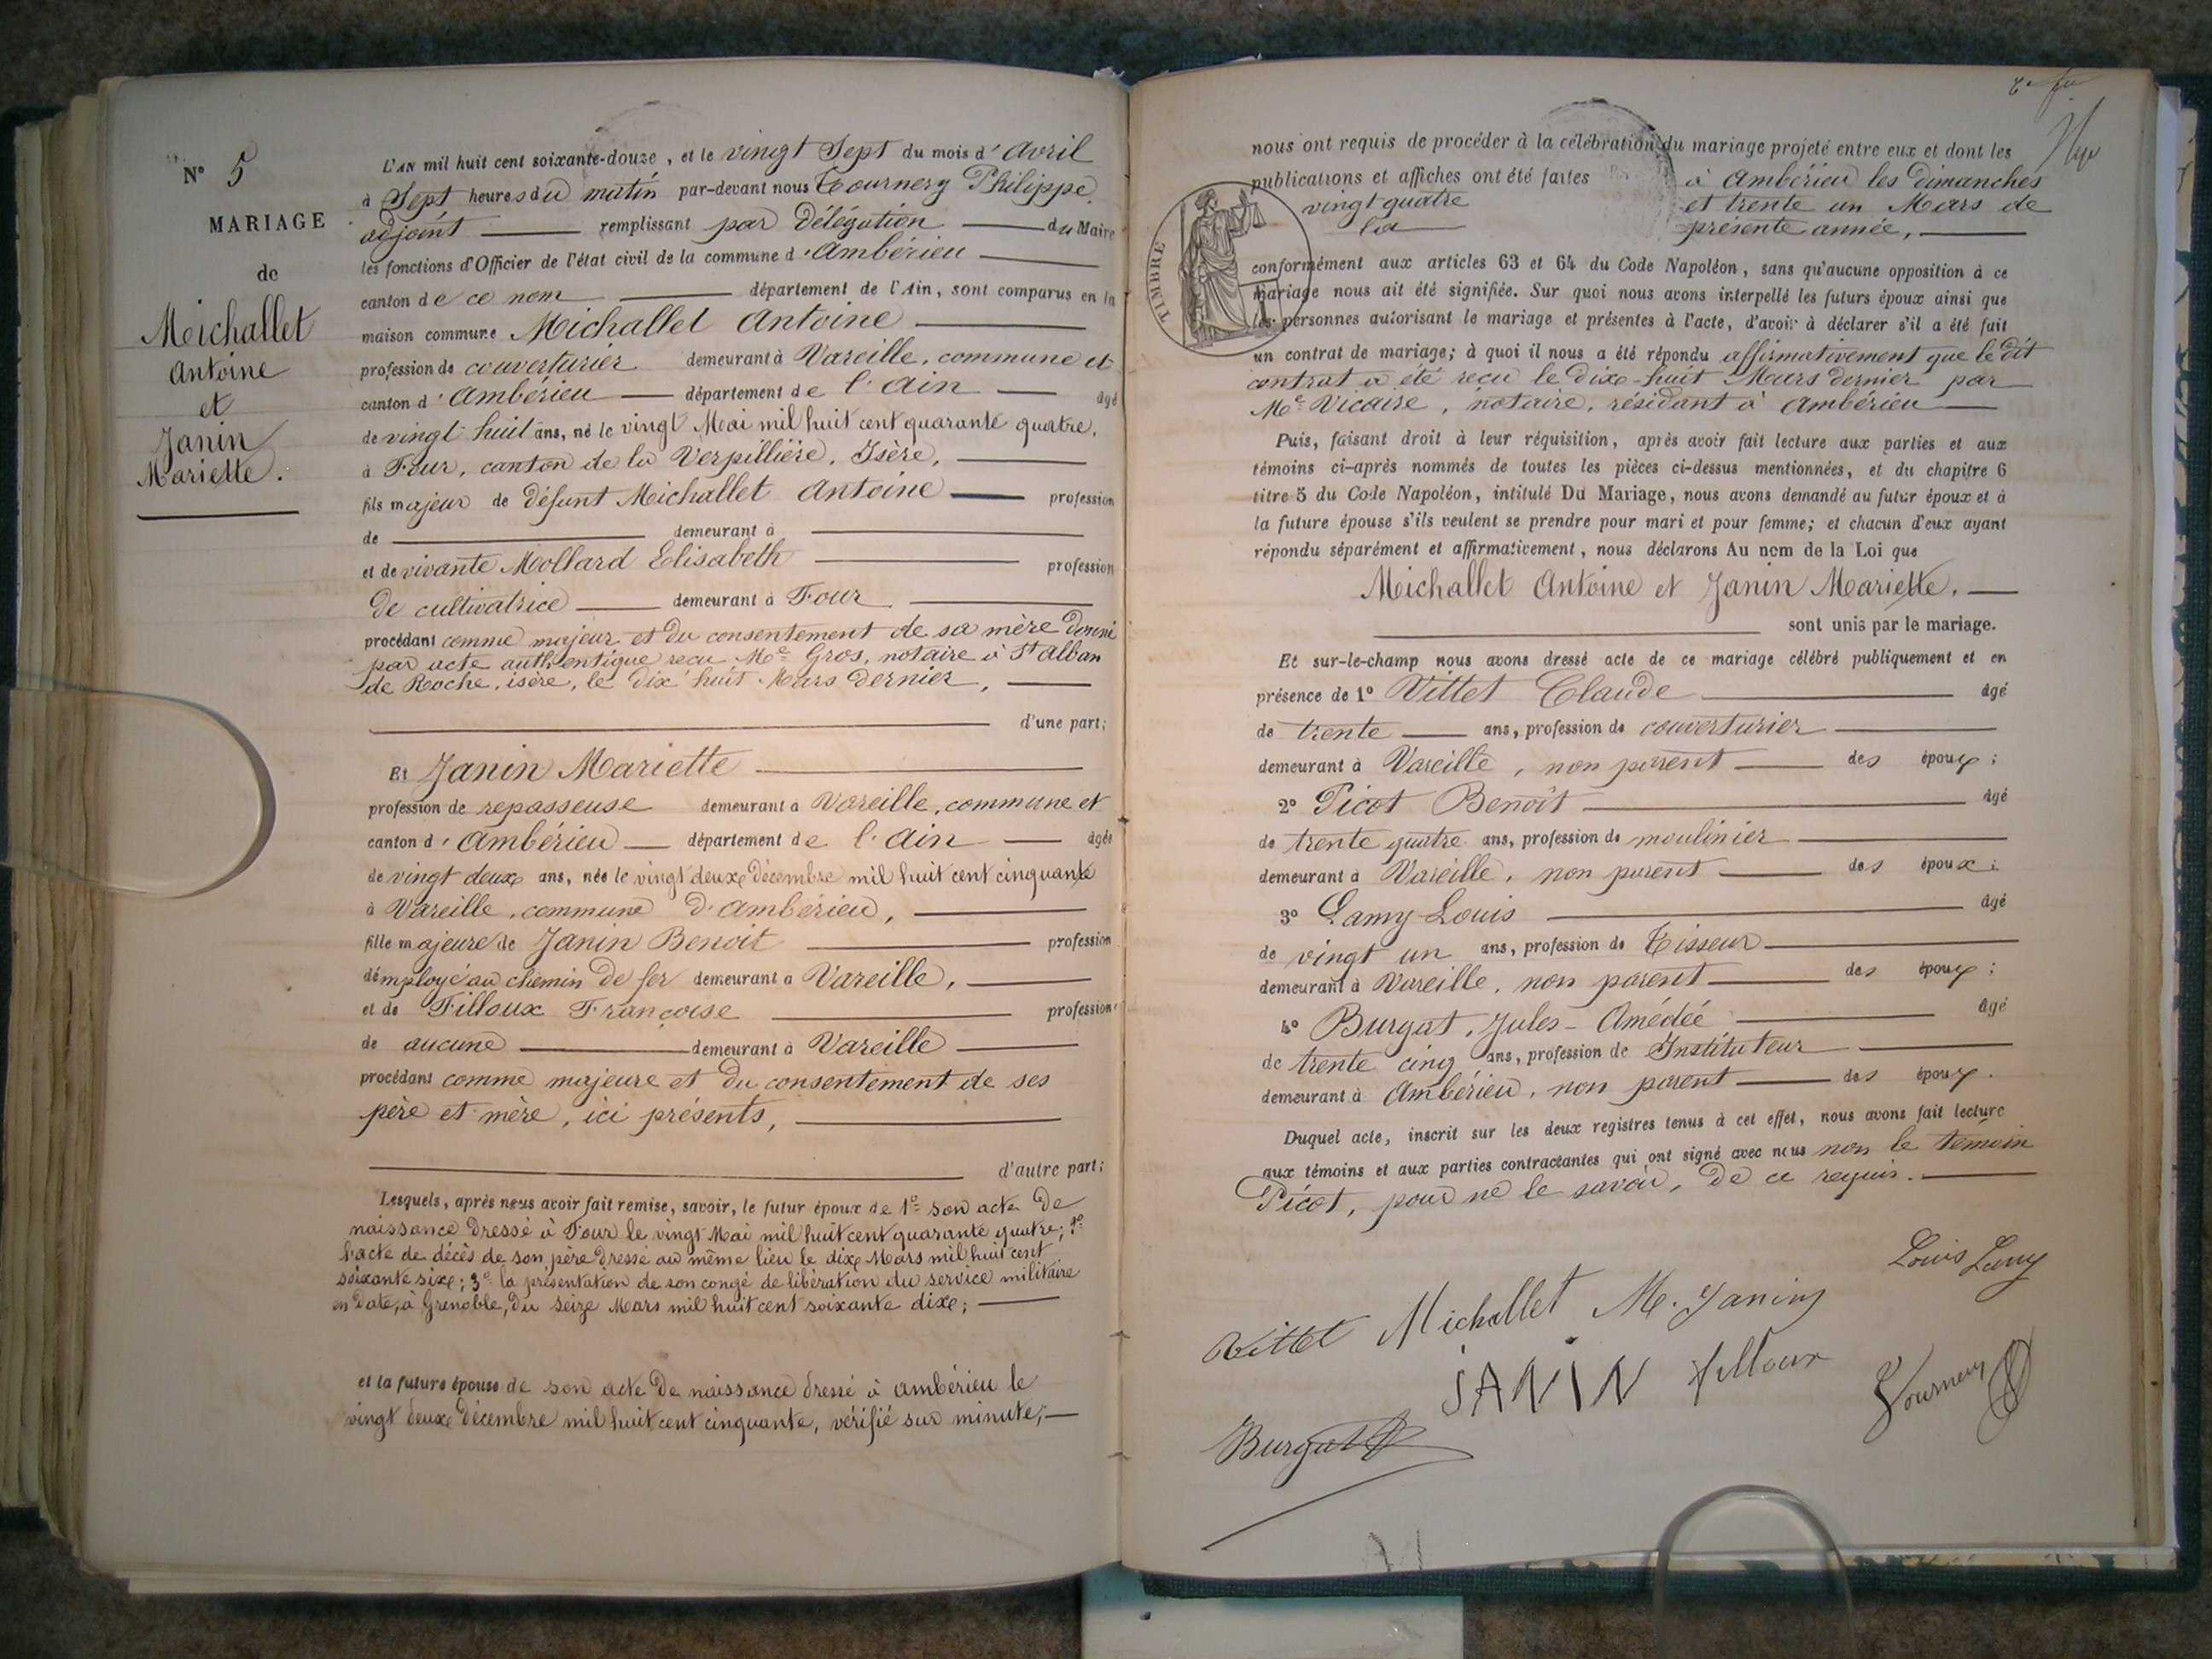 N° 5
MARIAGE
de
Michallet
Antoine
et
Janin
Mariette.
L'AN mil huit cent soixante-douze, et le vingt Sept du mois d'Avril
à Sept heures du matin par-devant nous Tournery Philippe,
adjoint remplissant par Délégation du Maire
les fonctions d'Officier de l'état civil de la commune d'Ambérieu
canton de ce nom département de l'Ain, sont comparus en la
maison commune Michallet Antoine
profession de couverturier demeurant à Vareille, commune et
canton d'Ambérieu département de l'Ain âgé
de vingt huit ans, né le vingt Mai mil huit cent quarante quatre,
à Four, canton de la Verpillière, Isère,
fils majeur de défunt Michallet Antoine profession
de demeurant à
et de vivante Mollard Elisabeth profession
de cultivatrice demeurant à Four
procédant comme majeur et du consentement de sa mère donné
par acte authentique reçu Me Gros, notaire à St Alban
de Roche, isère, le dix huit Mars dernier,
d'une part;
Et Janin Mariette
profession de repasseuse demeurant à Vareille, commune et
canton d'Ambérieu département de l'Ain âgée
de vingt deux ans, née le vingt deux décembre mil huit cent cinquante
à Vareille, commune d'Ambérieu,
fille majeure de Janin Benoit profession
d'employé au chemin de fer demeurant à Vareille,
et de Filloux Françoise profession
de aucune demeurant à Vareille
procédant comme majeure et du consentement de ses
père et mère, ici présents,
d'autre part;
Lesquels, après nous avoir fait remise, savoir, le futur époux de 1° son acte de
naissance dressé à Four le vingt Mai mil huit cent quarante quatre; 2°
l'acte de décès de son père dressé au même lieu le dix Mars mil huit cent
soixante six; 3° la présentation de son congé de libération du service militaire
en date, à Grenoble, du seize Mars mil huit cent soixante dix;
et la future épouse de son acte de naissance dressé à Ambérieu le
vingt deux décembre mil huit cent cinquante, vérifié sur minute;
nous ont requis de procéder à la célébration du mariage projeté entre eux et dont les
publications et affiches ont été faites à Ambérieu les dimanches
vingt quatre et trente un Mars de
la présente année,
TIMBRE
conformément aux articles 63 et 64 du Code Napoléon, sans qu'aucune opposition à ce
mariage nous ait été signifiée. Sur quoi nous avons interpellé les futurs époux ainsi que
les personnes autorisant le mariage et présentes à l'acte, d'avoir à déclarer s'il a été fait
un contrat de mariage; à quoi il nous a été répondu affirmativement que le dit
contrat a été reçu le dix-huit Mars dernier par
Me Vicaire, notaire, résidant à Ambérieu
Puis, faisant droit à leur réquisition, après avoir fait lecture aux parties et aux
témoins ci-après nommés de toutes les pièces ci-dessus mentionnées, et du chapitre 6
titre 5 du Code Napoléon, intitulé Du Mariage, nous avons demandé au futur époux et à
la future épouse s'ils veulent se prendre pour mari et pour femme; et chacun d'eux ayant
répondu séparément et affirmativement, nous déclarons Au nom de la Loi que
Michallet Antoine et Janin Mariette,
sont unis par le mariage.
Et sur-le-champ nous avons dressé acte de ce mariage célébré publiquement et en
présence de 1° Vittet Claude âgé
de trente ans, profession de couverturier
demeurant à Vareille, non parent des époux;
2° Picot Benoît âgé
de trente quatre ans, profession de moulinier
demeurant à Vareille, non parent des époux;
3° Lamy Louis âgé
de vingt un ans, profession de Tisseur
demeurant à Vareille, non parent des époux;
4° Burgat, Jules-Amédéé âgé
de trente cinq ans, profession de Instituteur
demeurant à Ambérieu, non parent des époux.
Duquel acte, inscrit sur les deux registres tenus à cet effet, nous avons fait lecture
aux témoins et aux parties contractantes qui ont signé avec nous non le témoin
Picot, pour ne le savoir, de ce requis.
Louis Lamy
Vittet Michallet M. Janin
JANIN filloux Tournery
Burgat